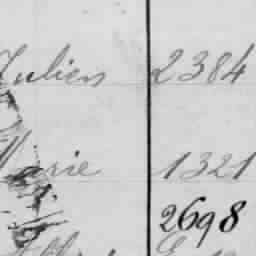 Julien 2384
Marie 1321
2698